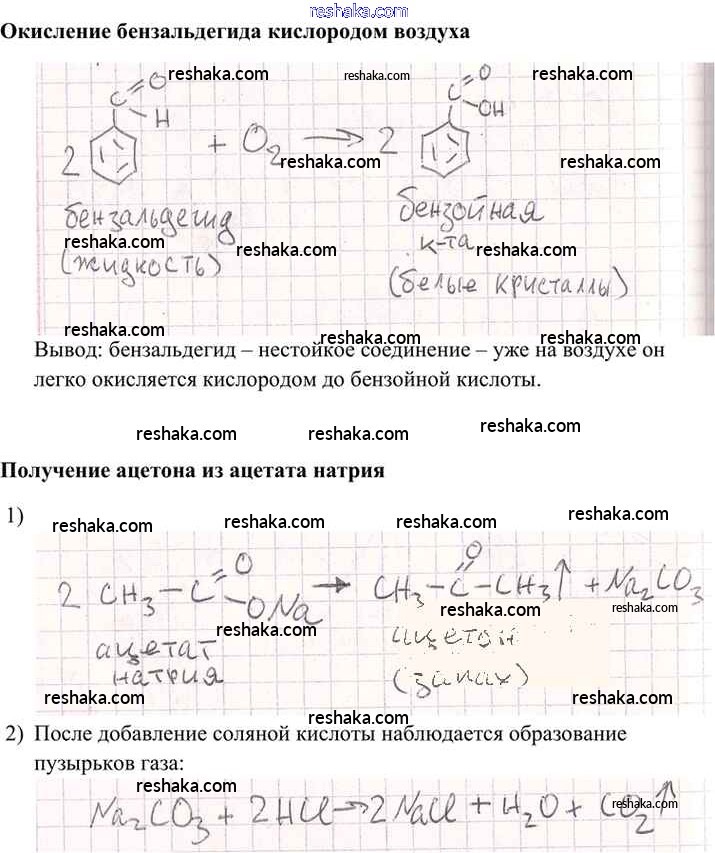 www.reshaka.com
Окисление бензальдегида кислородом воздуха
reshaka.com reshaka.com reshaka.com
C O C O
H OH
2 + O2 → 2
reshaka.com reshaka.com
бензальдегид бензойная
reshaka.com reshaka.com к-та reshaka.com
(жидкость) (белые кристаллы)
reshaka.com reshaka.com reshaka.com
Вывод: бензальдегид – нестойкое соединение – уже на воздухе он
легко окисляется кислородом до бензойной кислоты.
reshaka.com reshaka.com reshaka.com
Получение ацетона из ацетата натрия
1)
reshaka.com reshaka.com reshaka.com reshaka.com
O O
2 CH3–C ONa → CH3–C–CH3↑ + Na2CO3
reshaka.com reshaka.com reshaka.com
ацетат ацетон
натрия (запах)
reshaka.com reshaka.com reshaka.com
2) После добавление соляной кислоты наблюдается образование
пузырьков газа:
reshaka.com reshaka.com reshaka.com
Na2CO3 + 2HCl → 2NaCl + H2O + CO2↑